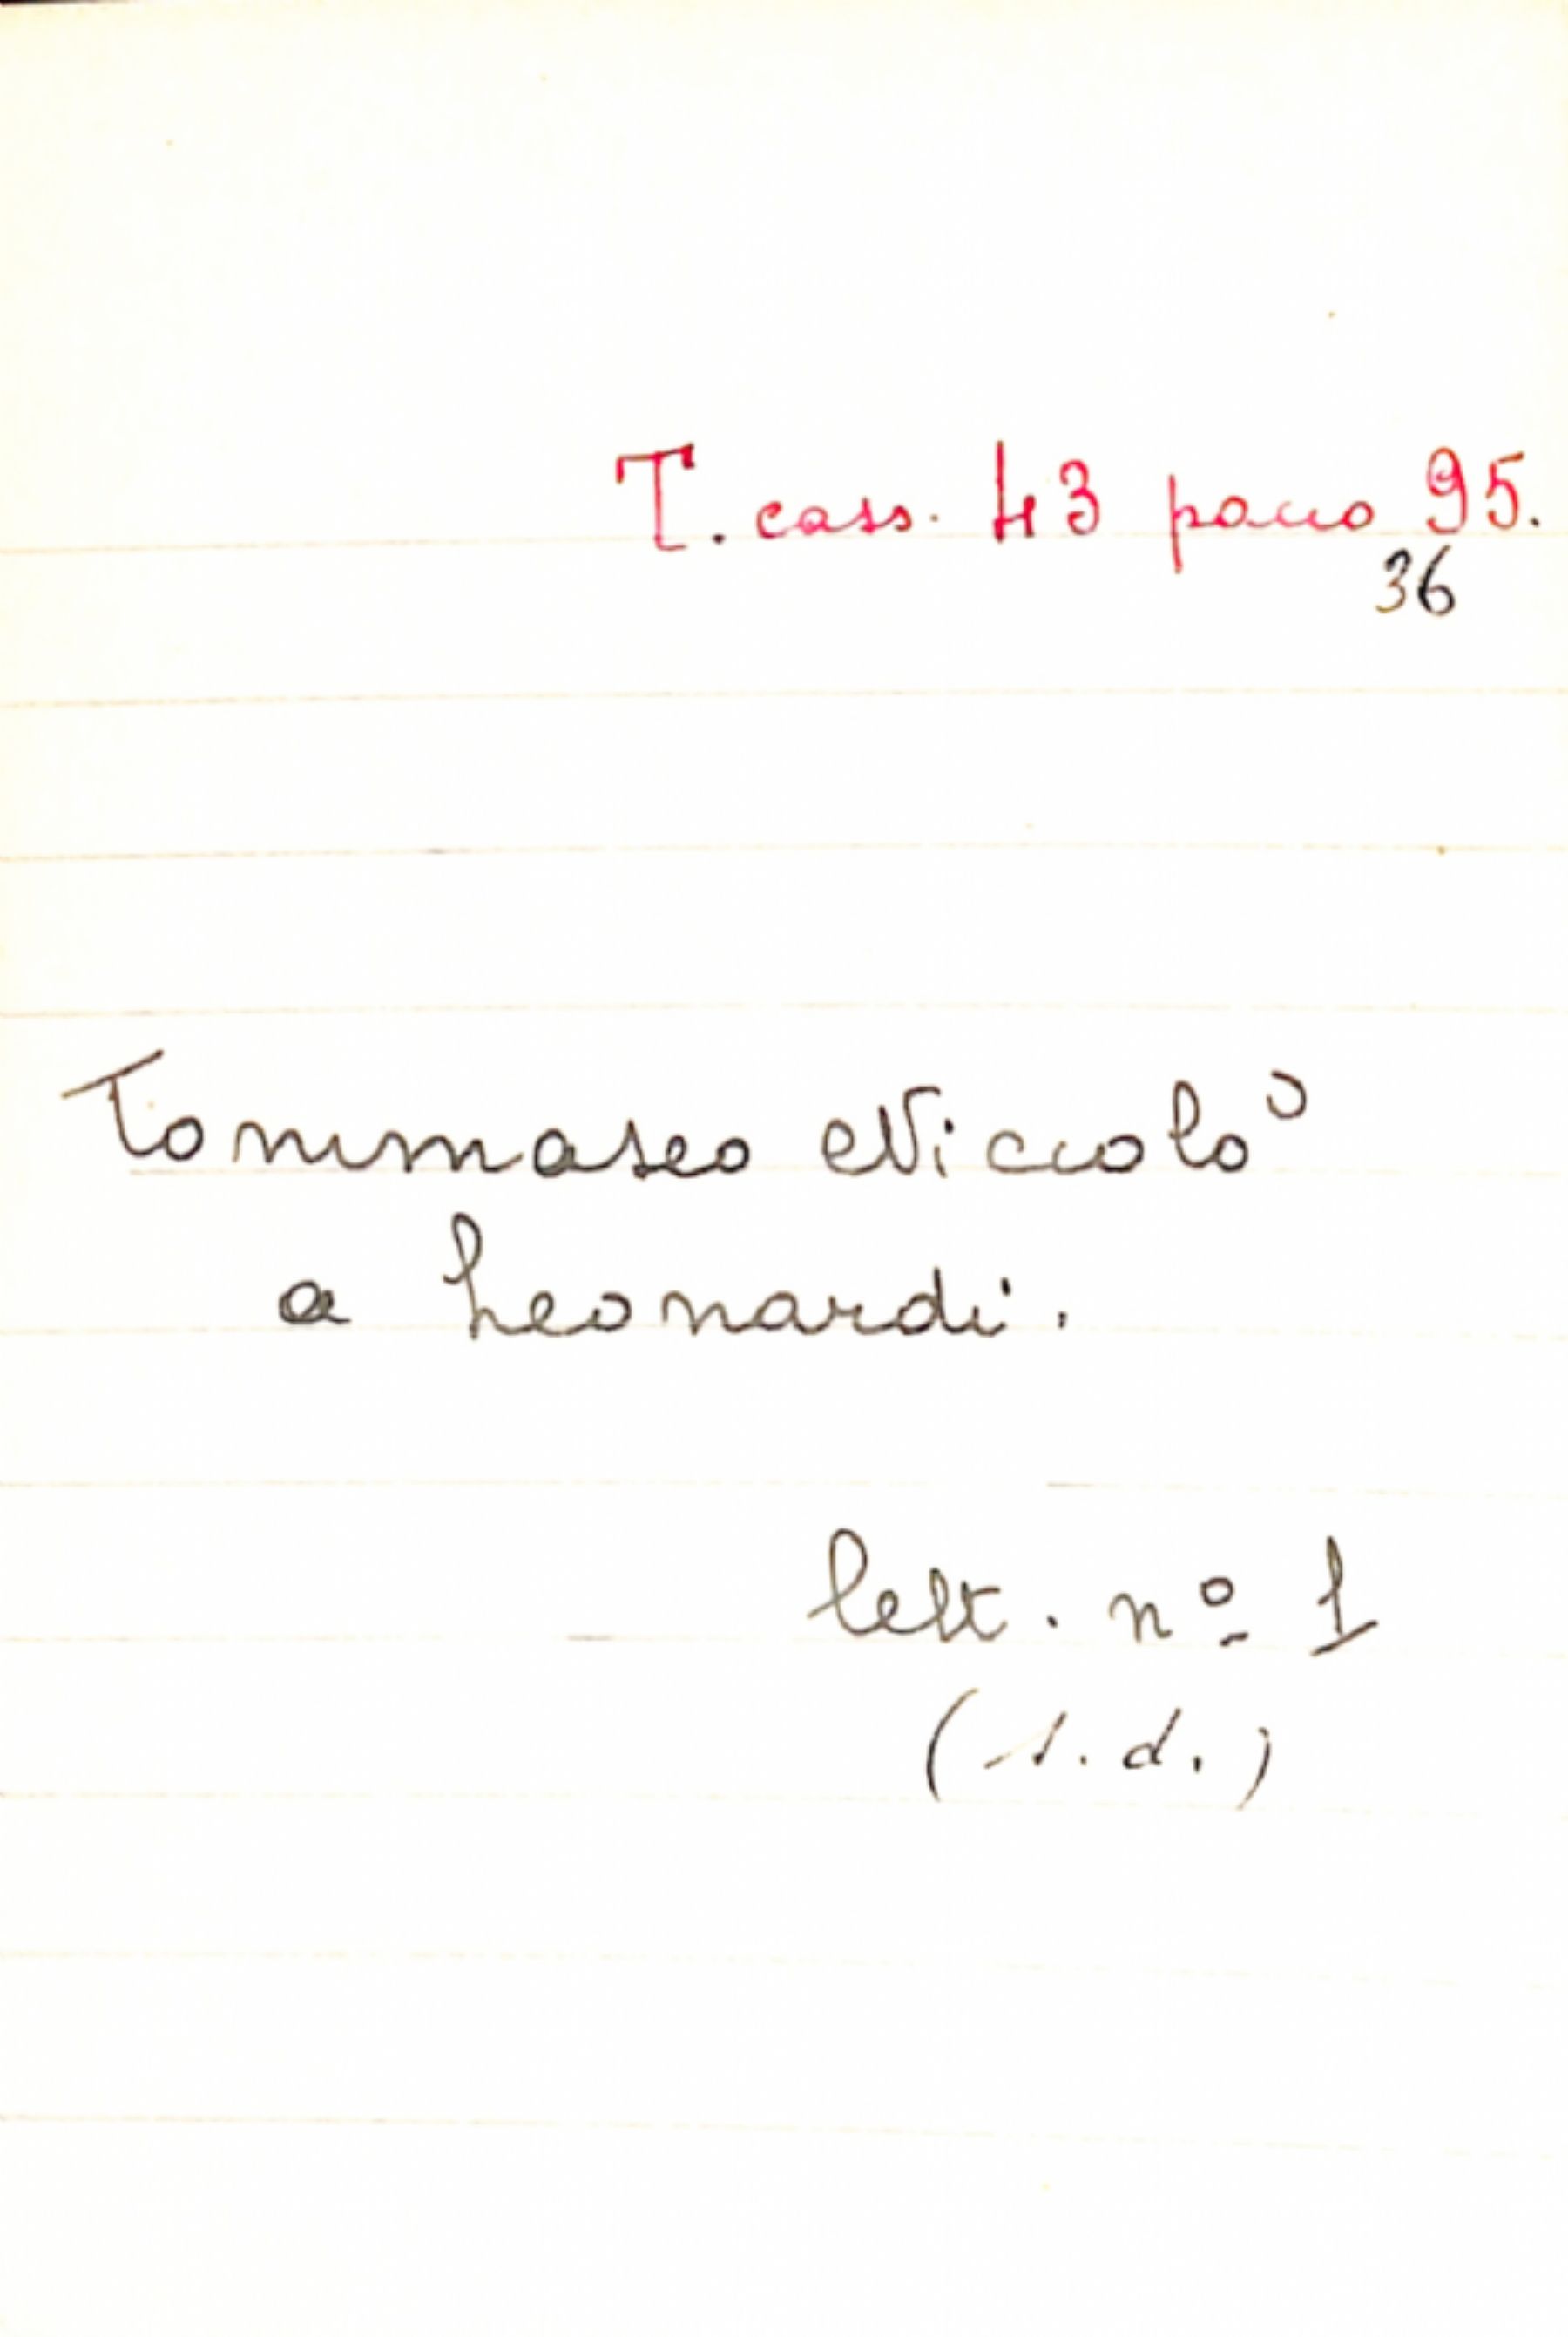 T. cass. 43 pacco 95.
36
Tommaseo Niccolò
a Leonardi.
lett. nº 1
(s. d.)